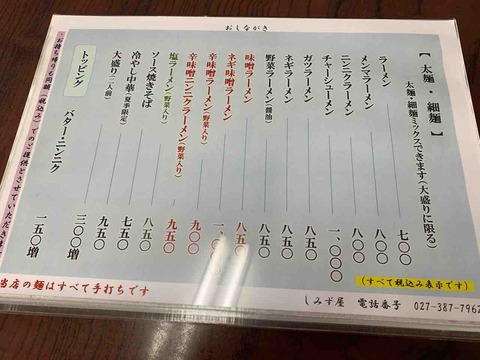 おしながき
【太麺・細麺】
太麺・細麺ミックスできます(大盛りに限る)
ラーメン 七〇〇
メンマラーメン 八〇〇
ニンニクラーメン 八〇〇
チャーシューメン 一、〇〇〇
ガツラーメン 八五〇
ネギラーメン 八五〇
野菜ラーメン(醤油) 八五〇
味噌ラーメン 八五〇
ネギ味噌ラーメン 一、〇〇〇
辛味噌ラーメン(野菜入り) 九〇〇
辛味噌ニンニクラーメン(野菜入り) 九五〇
塩ラーメン(野菜入り) 八五〇
ソース焼きそば 七五〇
冷やし中華(夏季限定) 九五〇
大盛り(二人前) 三〇〇増
トッピング
バター・ニンニク 一五〇増
お持ち帰りも同額(税込み)でのご提供とさせていただき
(すべて税込み表示です)
当店の麺はすべて手打ちです
しみず屋 電話番号 027-387-7962